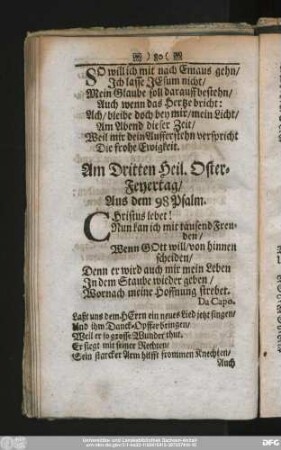 ) 80 (
SO will ich mit nach Emaus gehn/
Ich lasse JEsum nicht/
Mein Glaube soll darauff bestehn/
Auch wenn das Hertze bricht:
Ach/ bleibe doch bey mir/ mein Licht/
Am Abend dieser Zeit/
Weil mir dein Aufferstehn verspricht
Die frohe Ewigkeit.
Am Dritten Heil. Oster-
Feyertag/
Aus dem 98 Psalm.
CHristus lebet!
Nun kan ich mit tausend Freu-
den/
Wenn GOtt will/ von hinnen
scheiden/
Denn er wird auch mir mein Leben
In dem Staube wieder geben/
Wornach meine Hoffnung strebet.
Da Capo.
Last uns dem HErrn ein neues Lied jetzt singen/
Und ihm Danck-Opffer bringen/
Weil er so grosse Wunder thut.
Er siegt mit seiner Rechten/
Sein starcker Arm hilfft frommen Knechten/
Auch